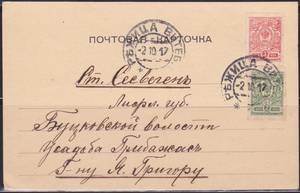 ПОЧТОВАЯ КАРТОЧКА
РѢЖИЦА ВИТЕБ
-2 10 17
РѢЖИЦА ВИ
-2 10 17
Ст. Сесвегенъ
Лифл. губ.
Буцковской волости
Усадьба
Г-ну Я. Григору